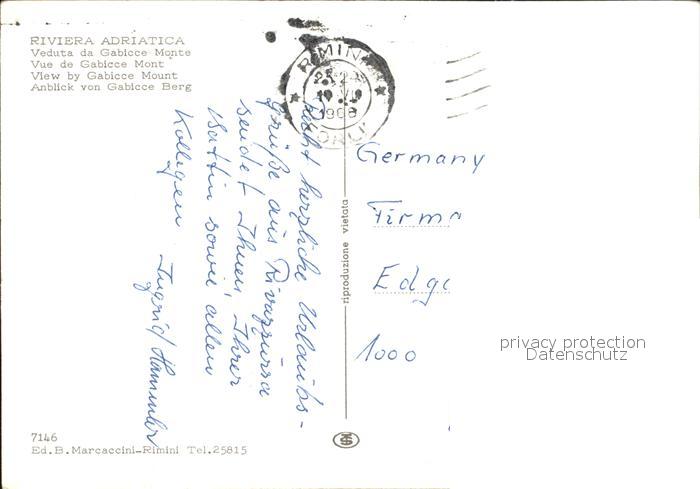 RIVIERA ADRIATICA
Veduta da Gabicce Monte
Vue de Gabicce Mont
View by Gabicce Mount
Anblick von Gabicce Berg
RIMINI
FORLI'
Recht herzliche Urlaubs-
grüße aus Rivazzurra
sendet Ihnen, Ihrer
Gattin sowie allen
Kollegen Ingrid
riproduzione vietata
Germany
Firma
Edga
1000
privacy protection
Datenschutz
7146
Ed.B.Marcaccini-Rimini Tel.25815